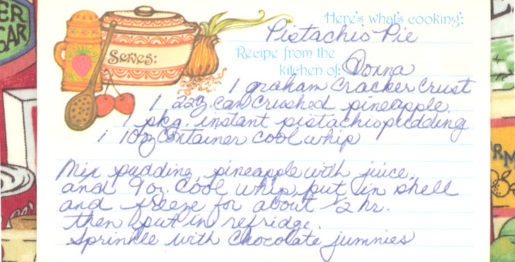 Here's what's cooking:
Pistachio Pie
Serves:
Recipe from the
kitchen of: Donna
1 graham cracker crust
1 22oz. can crushed pineapple
1 pkg. instant pistachio pudding
1 10oz container cool whip
Mix pudding, pineapple with juice
and 9oz. cool whip, put in shell
and freeze for about 1/2 hr.
then put in refridge.
Sprinkle with chocolate jummies